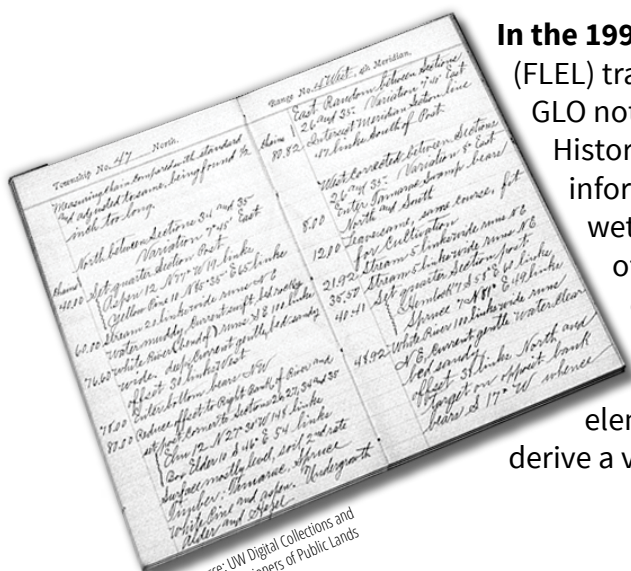 Township No. 47 North.
Measuring chain compared with standard
and adjusted to same, being found 1/2
inch too long.
North between Sections 34 and 35
Variation 7°45' East
chains
40.00 Set quarter section Post
Aspen 12 N 77° W 19 links
Yellow Pine 10 N 85°35' E 65 links
60.00 Stream 25 links wide runs N E
water muddy Current swift, bed rocky
76.60 White River (bend of) runs S E 100 links
wide. Current gentle, bed sandy
Offset 31 links West
78.00 Enter bottom, bears N W
80.00 Reduce offset to Right Bank of River and
set post corner to Sections 26, 27, 34 and 35
Elm 12 N 27°30' W 148 links
Elder 10 S 46° E 54 links
Surface mostly level, soil 2nd rate
Timber: Tamarac, Spruce
White Pine and aspen. Undergrowth
alder and Hazel
Range No. 4 West, 4th Meridian.
East Random between Sections
26 and 35 Variation 7°45' East
chains
80.82 Intersect Meridian Section line
47 links South of Post
West corrected between Sections
26 and 35 Variation 8° East
Enter Tamarac Swamp bears
North and South
8.00 Leave same, same course, fit
for Cultivation
12.00 Stream 5 links wide runs N E
21.92 Stream 5 links wide runs N E
35.57 Set quarter Section post
40.41 Hemlock 7 S 58° E 61 links
Spruce 7 N 81° E 49 links
48.92 White River 100 links wide runs
N E current gentle water clear
bed sandy
Offset 31 links North and
target on opposit bank
bears S 17° W whence
In the 199
(FLEL) tra
GLO not
Histor
infor
wet
of
elen
derive a v
rce: UW Digital Collections and
oners of Public Lands